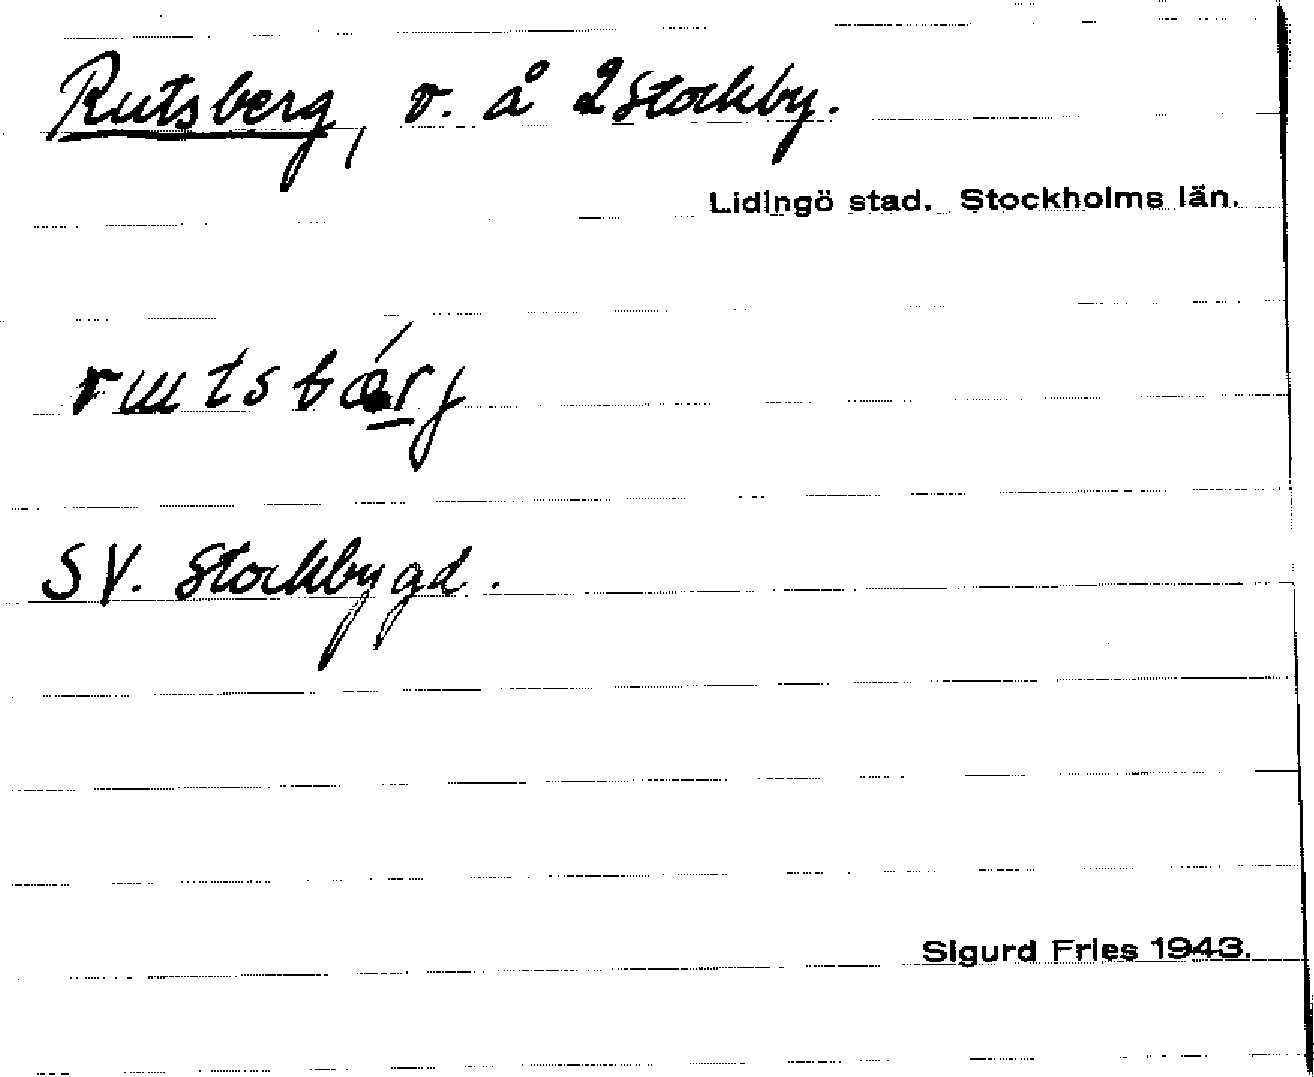 Rutsberg, v. å 2 Stockby.
Lidingö stad. Stockholms län.
SV. Stockby gd.
Sigurd Fries 1943.